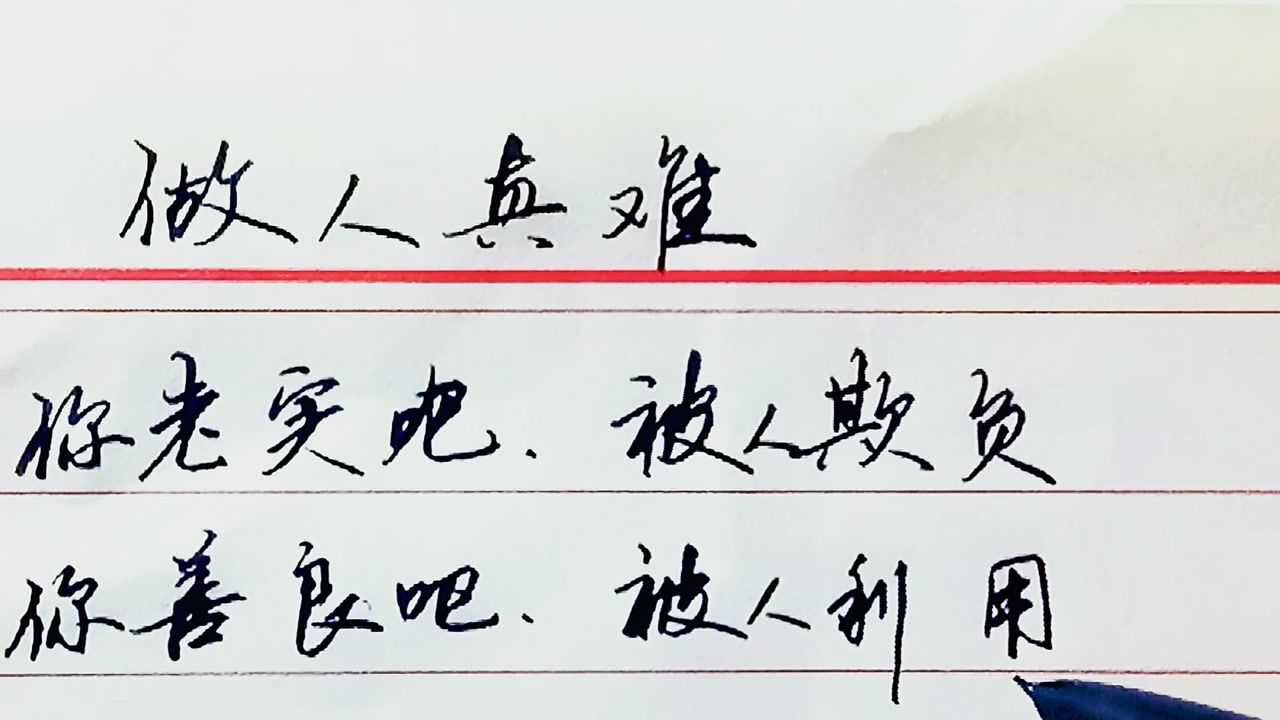 做人真难
你老实吧.被人欺负
你善良吧.被人利用